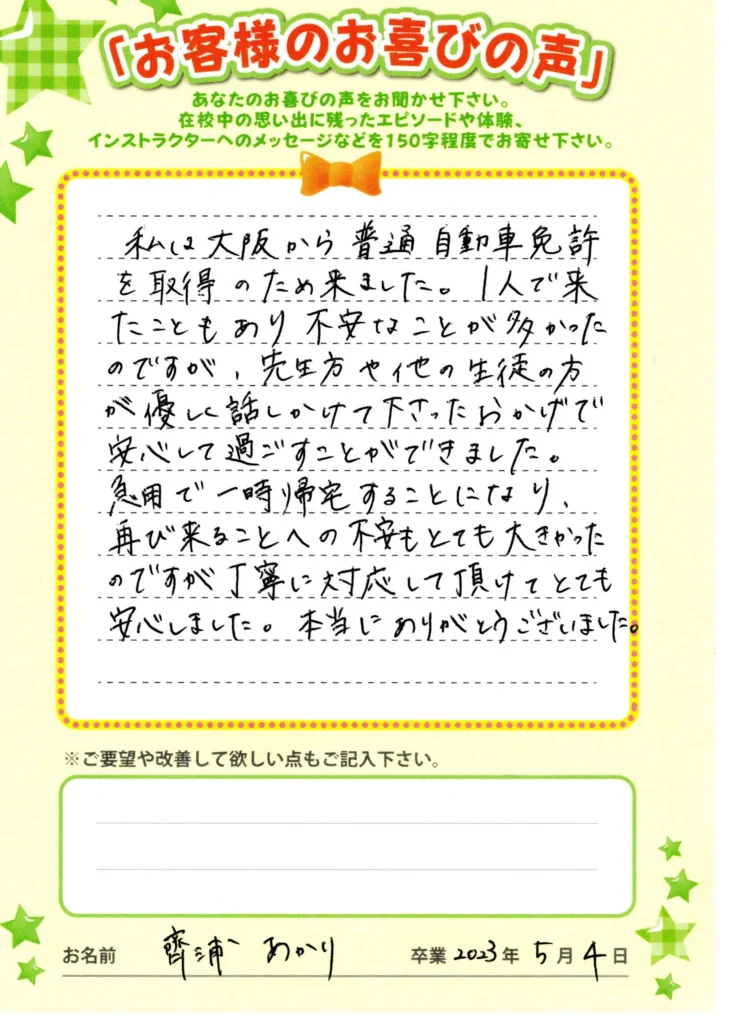 「お客様のお喜びの声」
あなたのお喜びの声をお聞かせ下さい。
在校中の思い出に残ったエピソードや体験、
インストラクターへのメッセージなどを150字程度でお寄せ下さい。
私は大阪から普通自動車免許
を取得のため来ました。1人で来
たこともあり不安なことが多かった
のですが、先生方や他の生徒の方
が優しく話しかけて下さったおかげで
安心して過ごすことができました。
急用で一時帰宅することになり、
再び来ることへの不安もとても大きかった
のですが丁寧に対応して頂けてとても
安心しました。本当にありがとうございました。
※ご要望や改善して欲しい点もご記入下さい。
お名前 齊浦 あかり 卒業 2023年 5月 4日